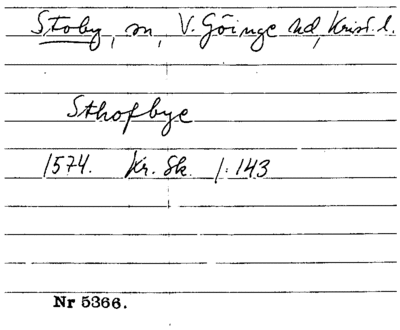 Stoby, sn, V. Göinge hd, Krist. l.
Sthofbye
1574. Kr. Sk. 1:143
Nr 5366.